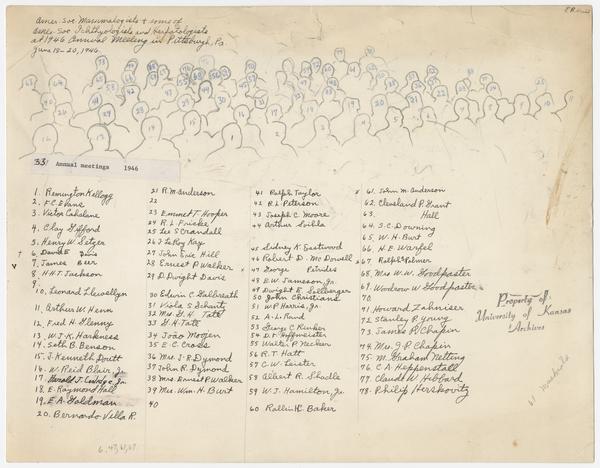 Amer. Soc. Mammalogists + some of
Amer. Soc. Ichthyologists and Herpetologists
at 1946 Annual Meeting in Pittsburgh, Pa.
June 18-20, 1946.
33 Annual meetings 1946
1. Remington Kellogg
2. F.C. Evans
3. Victor Cahalane
4. Clay Gifford
5. Henry W. Setzer
6. David E. Davis
7. James Beer
8. H.H.T. Jackson
9.
10. Leonard Llewellyn
11. Arthur W. Henn
12. Fred H. Glenny
13. W.J.K. Harkness
14. Seth B. Benson
15. J. Kenneth Doutt
16. W. Reid Blair, Jr.
17. Harold J. Coolidge, Jr.
18. E. Raymond Hall
19. E.A. Goldman
20. Bernardo Villa R.
21 R.M. Anderson
22
23 Emmet T. Hooper
24 R.L. Fricke
25 Lee S Crandall
26 J LeRoy Kay
27 John Eric Hill
28 Ernest P Walker
29 D. Dwight Davis
30 Edwin C. Galbreath
31 Viola S Schantz
32 Mrs G.H. Tate
33 G.H. Tate
34 João Moojen
35 E.C. Cross
36 Mrs J.R. Dymond
37 John R. Dymond
38 Mrs Ernest P Walker
39 Mrs. Wm. H. Burt
40
41 Ralph Taylor
42 R.L. Peterson
43 Joseph C. Moore
44 Arthur Loibla
45 Sidney K. Eastwood
46 Robert D. McDowell
47 George Petrides
48 E.W. Jameson, Jr.
49 Dwight E. Sollberger
50 John Christians
51 W.P. Harris, Jr
52 A.L. Rand
53 George C. Rinker
54 D.F. Hoffmeister
55 Walter P. Necker
56 R.T. Hatt
57 C.W. Leister
58 Albert R. Shadle
59 W.J. Hamilton, Jr.
60 Rollin H. Baker
61. John M. Anderson
62. Cleveland P. Grant
63. Hall
64. S.C. Downing
65. W.H. Burt
66. H.E. Warfel
67 Ralph S. Palmer
68. Mrs W.W. Goodpaster
69. Woodrow W Goodpaster
70.
71. Howard Zahniser
72 Stanley P. Young
73. James P. Chapin
74. Mrs. J.P. Chapin
75. M. Graham Netting
76. C.A. Heppenstall
77. Claude W Hibbard
78. Philip Herskovitz
Property of
University of Kansas
Archives